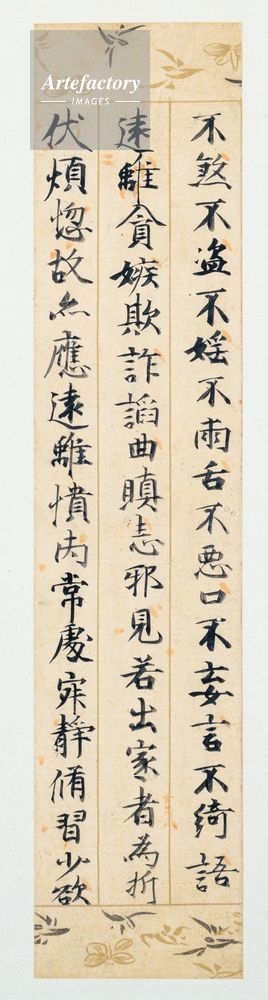 不煞不盗不婬不兩舌不悪口不妄言不綺語
遠離貪嫉欺詐諂曲瞋恚邪見若出家者為折
伏煩惚故亦應遠離憒丙常處寂靜脩習少欲
Artefactory
IMAGES